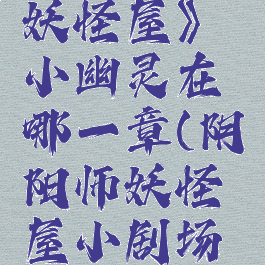 妖怪屋》
小幽灵在
哪一章(阴
阳师妖怪
屋小剧场